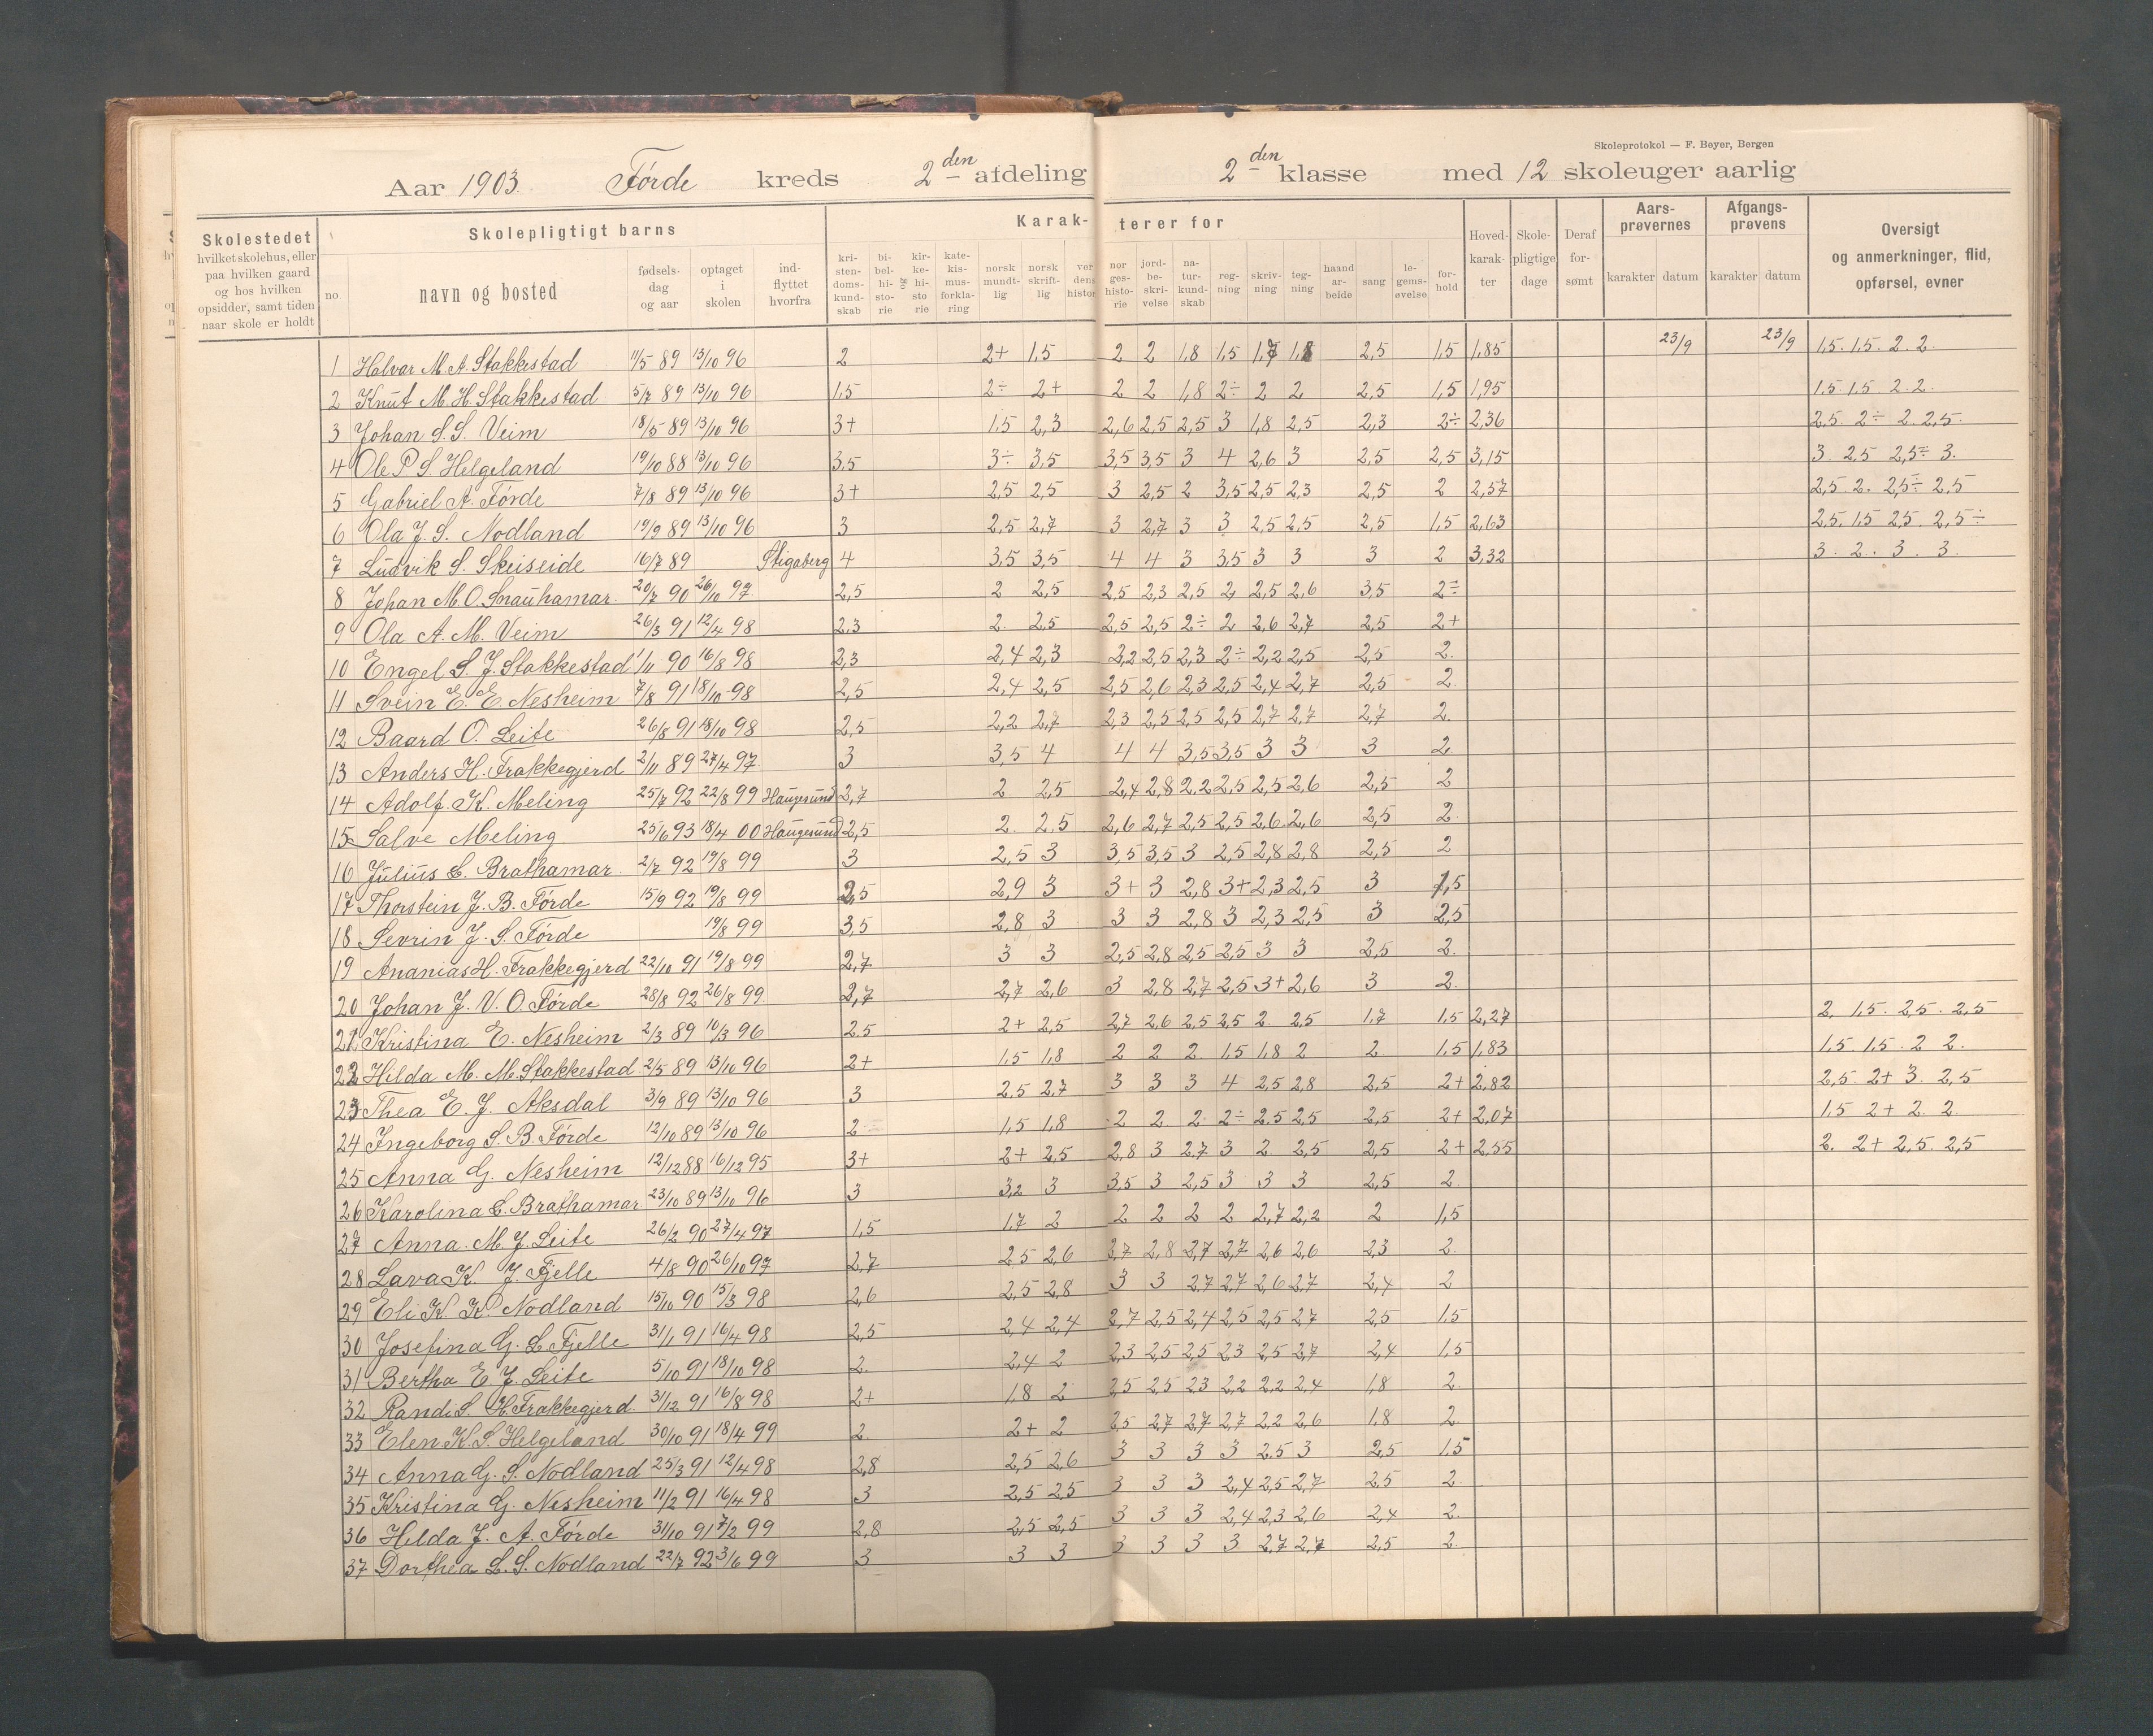 Skoleprotokol — F. Beyer, Bergen
Aar 1903. Førde kreds 2den afdeling 2den klasse med 12 skoleuger aarlig
Skolestedet hvilket skolehus, eller paa hvilken gaard og hos hvilken opsidder, samt tiden naar skole er holdt
Skolepligtigt barns
no. navn og bosted fødselsdag og aar optaget i skolen indflyttet hvorfra
Karakterer for
kristendomskundskab bibelhistorie og kirkehisto rie katekismusforklaring norsk mundtlig norsk skriftlig verdenshistor norgeshistorie jordbeskrivelse naturkundskab regning skrivning tegning haandarbeide sang legemsøvelse forhold
Hovedkarakter Skolepligtige dage Deraf forsømt
Aarsprøvernes karakter datum
Afgangsprøvens karakter datum
Oversigt og anmerkninger, flid, opførsel, evner
1 Halvar M. A. Stakkestad 11/5 89 13/10 96 2 2+ 1,5 2 2 1,8 1,5 1,7 1,8 2,5 1,5 1,85 23/9 23/9 1,5. 1,5. 2. 2.
2 Knut M. H. Stakkestad 5/7 89 13/10 96 1,5 2÷ 2+ 2 2 1,8 2÷ 2 2 2,5 1,5 1,95 1,5. 1,5. 2. 2.
3 Johan S. S. Veim 18/5 89 13/10 96 3+ 1,5 2,3 2,6 2,5 2,5 3 1,8 2,5 2,3 2÷ 2,36 2,5. 2÷ 2. 2,5.
4 Ole P. S. Helgeland 19/10 88 13/10 96 3,5 3÷ 3,5 3,5 3,5 3 4 2,6 3 2,5 2,5 3,15 3. 2,5 2,5÷ 3.
5 Gabriel A. Førde 7/8 89 13/10 96 3+ 2,5 2,5 3 2,5 2 3,5 2,5 2,3 2,5 2 2,57 2,5. 2. 2,5÷ 2,5
6 Ola J. S. Nodland 19/9 89 13/10 96 3 2,5 2,7 3 2,7 3 3 2,5 2,5 2,5 1,5 2,63 2,5. 1,5 2,5. 2,5÷
7 Ludvik S. Skeiseide 16/7 89 Stigaberg 4 3,5 3,5 4 4 3 3,5 3 3 3 2 3,32 3. 2. 3. 3.
8 Johan M. O. Snauhamar. 20/7 90 26/10 97. 2,5 2 2,5 2,5 2,3 2,5 2 2,5 2,6 3,5 2÷
9 Ola A. M. Veim 26/3 91 12/4 98 2,3 2. 2,5 2,5 2,5 2÷ 2 2,6 2,7 2,5 2+
10 Engel S. J. Stakkestad 1/11 90 16/8 98 2,3 2,4 2,3 3,2 2,5 2,3 2÷ 2,2 2,5 2,5 2.
11 Svein E. E. Nesheim 7/8 91 18/10 98 2,5 2,4 2,5 2,5 2,6 2,3 2,5 2,4 2,7 2,5 2.
12 Baard O. Leite 26/8 91 18/10 98 2,5 2,2 2,7 2,3 2,5 2,5 2,5 2,7 2,7 2,7 2.
13 Anders H. Frakkegjerd 2/11 89 27/4 97. 3 3,5 4 4 4 3,5 3,5 3 3 3 2
14 Adolf K. Meling 25/7 92 22/8 99 Haugesund 2,7 2 2,5 2,4 2,8 2,2 2,5 2,5 2,6 2,5 2
15 Salve Meling 25/6 93 18/4 00 Haugesund 2,5 2. 2,5 2,6 2,7 2,5 2,5 2,6 2,6 2,5 2.
16 Julius L. Brathamar. 2/7 92 19/8 99 3 2,5 3 3,5 3,5 3 2,5 2,8 2,8 2,5 2
17 Thorstein J. B. Førde 15/9 92 19/8 99 2,5 2,9 3 3+ 3 2,8 3+ 2,3 2,5 3 1,5
18 Sevrin J. S. Førde 19/8 99 3,5 2,8 3 3 3 2,8 3 2,3 2,5 3 2,5
19 Ananias H. Frakkegjerd 22/10 91 19/8 99 2,7 3 3 2,5 2,8 2,5 2,5 3 3 2,5 2.
20 Johan J. V. O. Førde 28/8 92 26/8 99. 2,7 2,7 2,6 3 2,8 2,7 2,5 3+ 2,6 3 2.
21 Kristina E. Nesheim 2/3 89 10/3 96 2,5 2+ 2,5 2,7 2,6 2,5 2,5 2 2,5 1,7 1,5 2,27 2. 1,5. 2,5. 2,5
22 Hilda M. M. Stakkestad 2/5 89 13/10 96 2+ 1,5 1,8 2 2 2 1,5 1,8 2 2 1,5 1,83 1,5. 1,5. 2 2.
23 Thea E. J. Aksdal 3/9 89 13/10 96 3 2,5 2,7 3 3 3 4 2,5 2,8 2,5 2+ 2,82 2,5. 2+ 3. 2,5
24 Ingeborg S. B. Førde 12/10 89 13/10 96 2 1,5 1,8 2 2 2 2÷ 2,5 2,5 2,5 2+ 2,07 1,5 2+ 2 2
25 Anna G. Nesheim 12/12 88 16/12 95 3+ 2+ 2,5 2,8 3 2,7 3 2 2,5 2,5 2+ 2,55 2. 2+ 2,5. 2,5
26 Karolina L. Brathamar 23/10 89 13/10 96 3 3,2 3 3,5 3 2,5 3 3 3 2,5 2.
27 Anna. M. J. Leite 26/2 90 27/4 97 1,5 1,7 2 2 2 2 2 2,7 2,2 2 1,5
28 Lava K. J. Fjelle 4/8 90 26/10 97 2,7 2,5 2,6 2,7 2,8 2,7 2,7 2,6 2,6 2,3 2.
29 Eli K. K. Nodland 15/10 90 15/3 98 2,6 2,5 2,8 3 3 2,7 2,7 2,6 2,7 2,4 2
30 Josefina G. L. Fjelle 31/1 91 16/4 98 2,5 2,4 2,4 2,7 2,5 2,4 2,5 2,5 2,7 2,5 1,5
31 Bertha E. J. Leite 5/10 91 18/10 98 2. 2,4 2 2,3 2,5 2,5 2,3 2,5 2,7 2,4 1,5
32 Randi S. H. Frakkegjerd. 31/12 91 16/8 98 2+ 1,8 2 2,5 2,5 2,3 2,2 2,2 2,4 1,8 2.
33 Elen K. S. Helgeland 30/10 91 18/4 99 2. 2+ 2 2,5 2,7 2,7 2,7 2,2 2,6 1,8 2.
34 Anna G. S. Nodland 25/3 91 12/4 98 2,8 2,5 2,6 3 3 3 3 2,5 3 2,5 1,5
35 Kristina G. Nesheim 11/2 91 16/4 98 3 2,5 2,5 3 3 3 2,4 2,5 2,7 2,5 2
36 Helda J. A. Førde 31/10 91 7/2 99 2,8 2,5 2,5 3 3 3 2,4 2,3 2,6 2,4 2.
37 Dorthea L. S. Nodland 22/7 92 3/6 99 3 3 3 3 3 3 3 2,7 2,7 2,5 2.